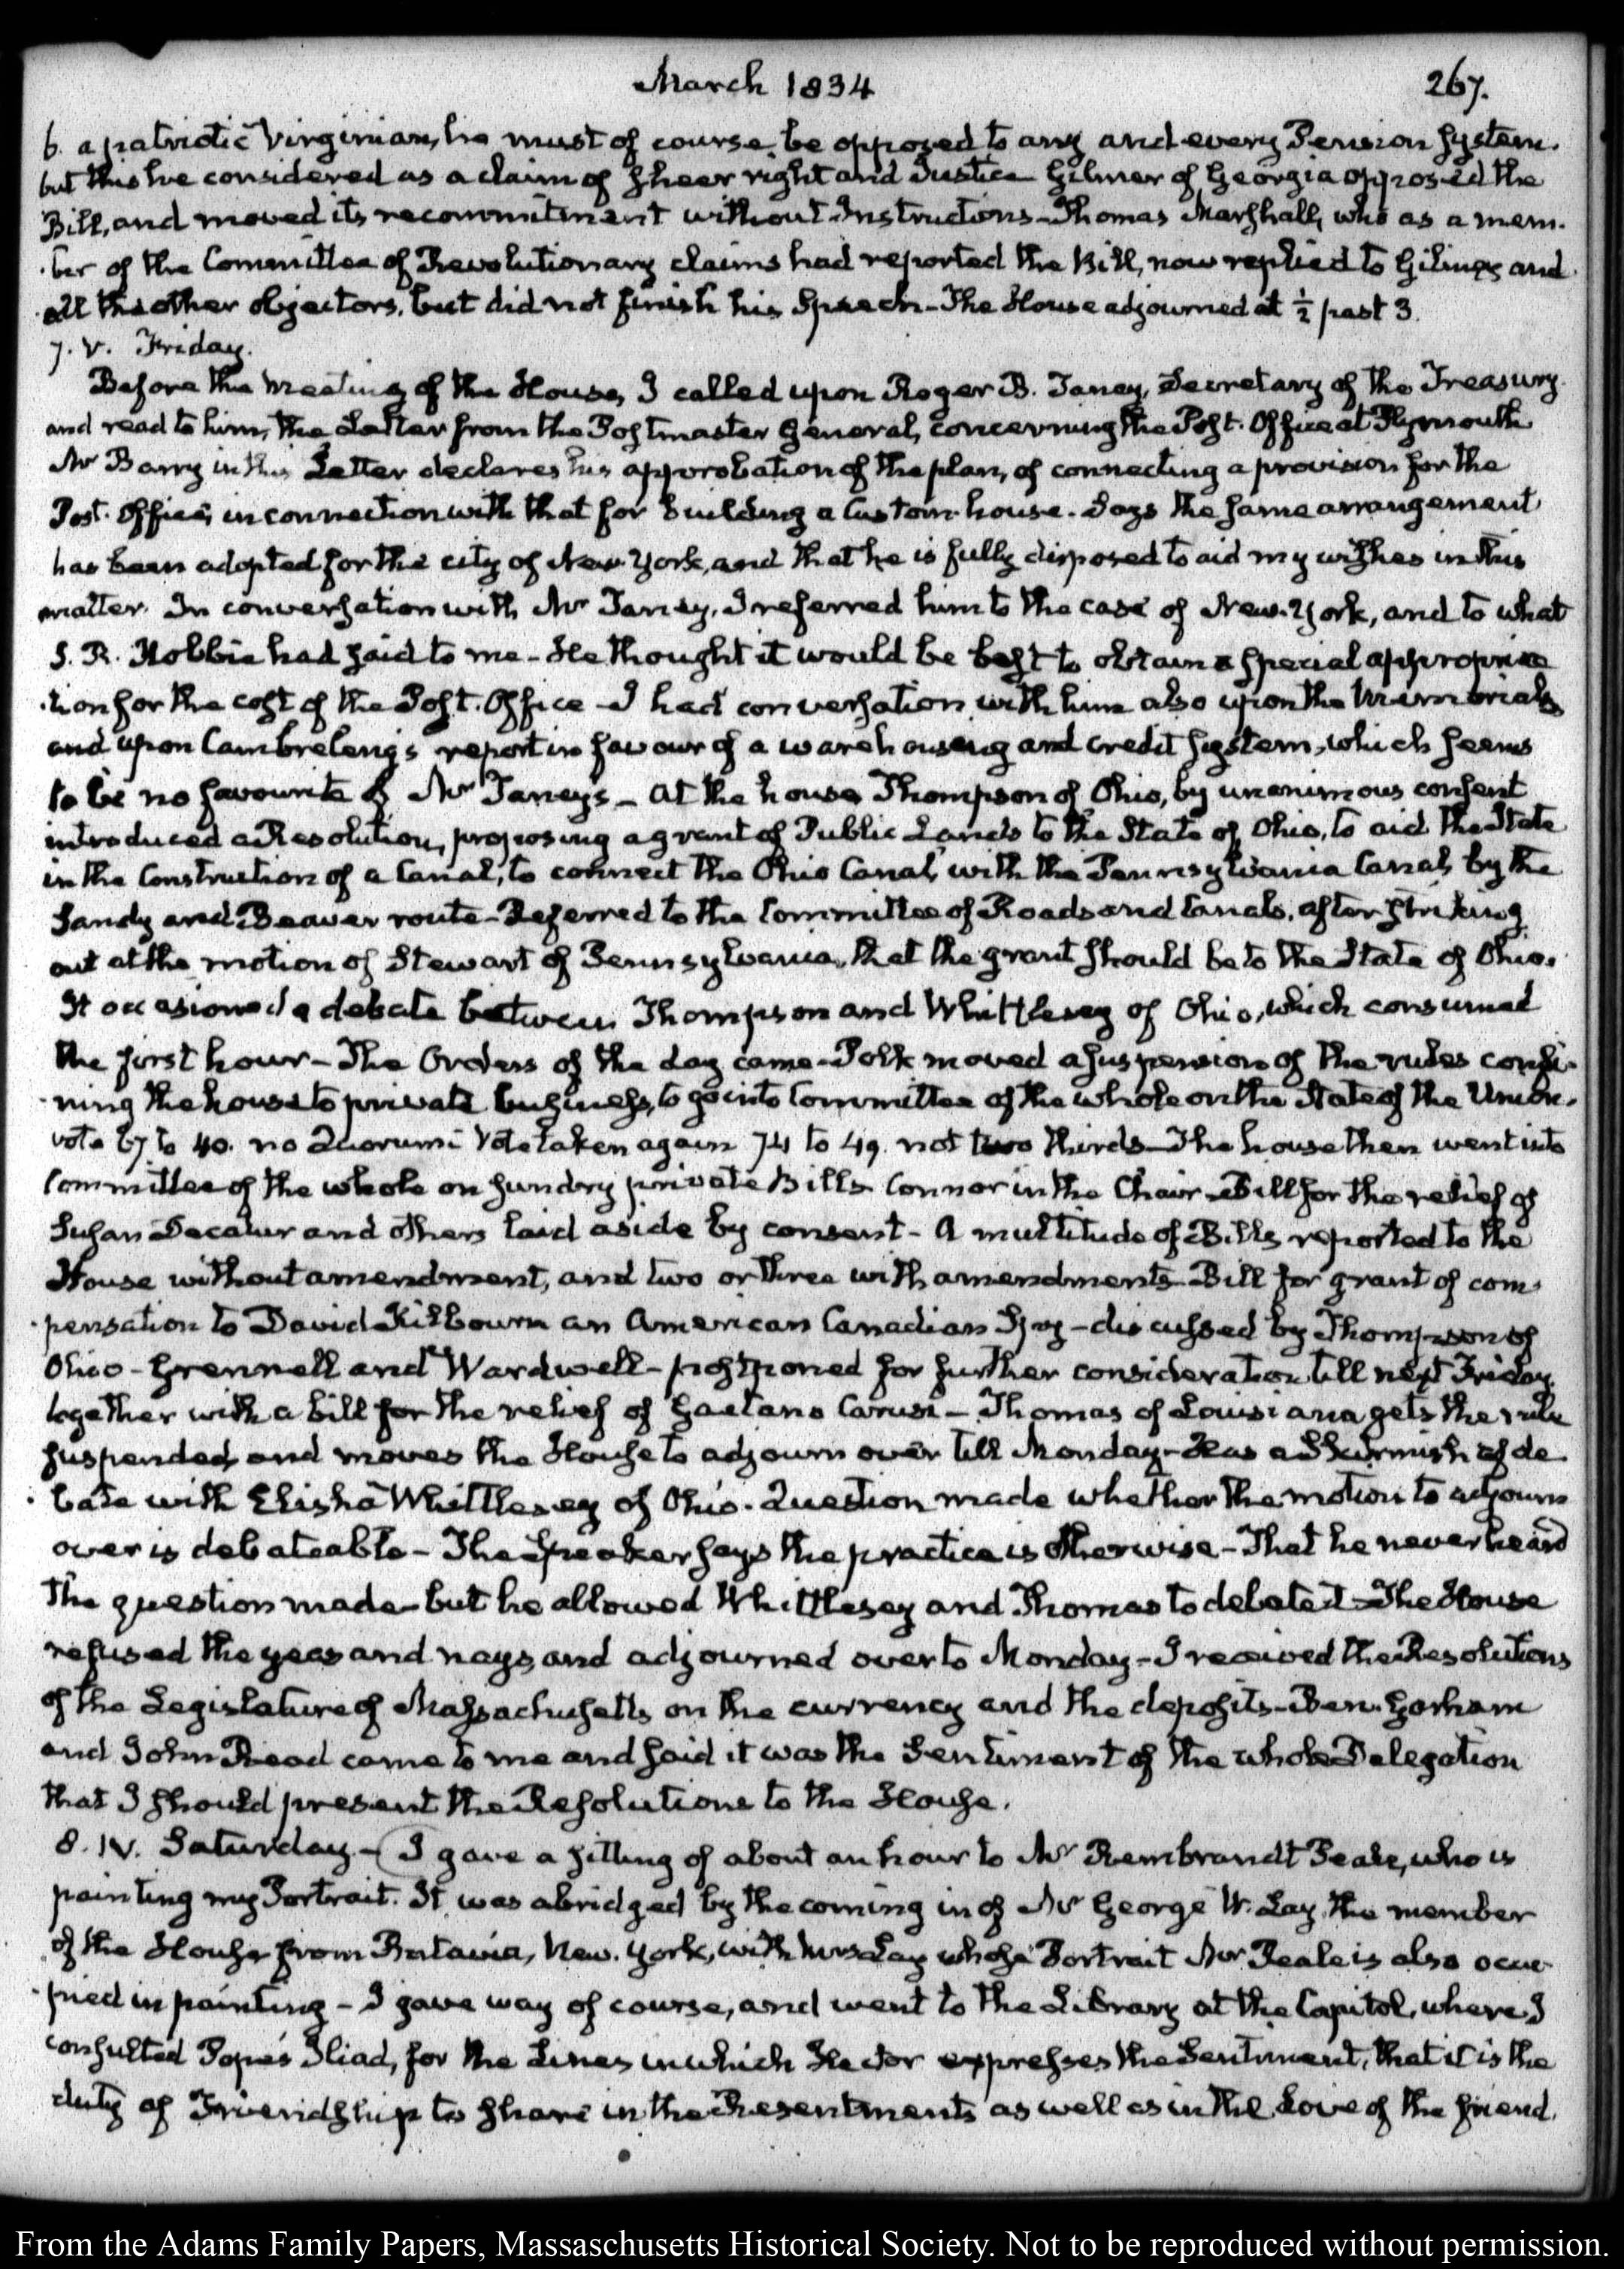 March 1834
267.
6. a patriotic Virginian, he must of course be opposed to any and every Pension System.
but this he considered as a claim of sheer right and Justice Gilmer of Georgia opposed the
Bill, and moved its recommitment without Instructions - Thomas Marshall, who as a mem-
-ber of the Committee of Revolutionary claims had reported the Bill, now replied to Gilmer and
all the other objectors, but did not finish his Speech - The House adjourned at ½ past 3.
7. V. Friday.
Before the meeting of the House, I called upon Roger B. Taney, Secretary of the Treasury
and read to him, the Letter from the Postmaster General, concerning the Post-Office at Plymouth
Mr Barry in this Letter declares his approbation of the plan, of connecting a provision for the
Post-Office, in connection with that for building a Custom-house. Says the same arrangement
has been adopted for the city of New-York, and that he is fully disposed to aid my wishes in this
matter. In conversation with Mr Taney, I referred him to the case of New-York, and to what
S. R. Hobbie had said to me - He thought it would be best to obtain a special appropria
-tion for the cost of the Post-Office - I had conversation with him also upon the Memorials
and upon Cambreleng's report in favour of a warehousing and credit system, which seems
to be no favourite of Mr Taney's - At the house Thompson of Ohio, by unanimous consent
introduced a Resolution, proposing a grant of Public Lands to the State of Ohio, to aid the State
in the Construction of a Canal, to connect the Ohio Canal, with the Pennsylvania Canal, by the
Sandy and Beaver route - Referred to the Committee of Roads and Canals, after striking
out at the motion of Stewart of Pennsylvania, that the grant should be to the State of Ohio.
It occasioned a debate between Thompson and Whittlesey of Ohio, which consumed
the first hour - The Orders of the day came - Polk moved a suspension of the rules confi-
-ning the house to private business, to go into Committee of the whole on the State of the Union.
vote 67 to 40. no Quorum. Vote taken again 74 to 49. not two thirds - The house then went into
Committee of the whole on sundry private Bills Connor in the Chair - Bill for the relief of
Susan Decatur and others laid aside by consent - A multitude of Bills reported to the
House without amendment, and two or three with amendments - Bill for grant of com-
-pensation to David Kilbourn an American Canadian Spy - discussed by Thompson of
Ohio - Grennell and Wardwell - postponed for further consideration till next Friday,
together with a bill for the relief of Gaetano Carusi - Thomas of Louisiana gets the rule
suspended, and moves the House to adjourn over till Monday - Has a Skirmish of de
-bate with Elisha Whittlesey of Ohio. Question made whether the motion to adjourn
over is debateable - The Speaker says the practice is otherwise - That he never heard
the question made - but he allowed Whittlesey and Thomas to debate it - The House
refused the yeas and nays and adjourned over to Monday - I received the Resolutions
of the Legislature of Massachusetts on the currency and the deposits - Ben. Gorham
and John Reed came to me and said it was the Sentiment of the whole Delegation
that I should present the Resolutions to the House.
8. IV. Saturday - I gave a sitting of about an hour to Mr Rembrandt Peale, who is
painting my Portrait. It was abridged by the coming in of Mr George W. Lay, the member
of the House from Batavia, New-York, with Mrs Lay whose Portrait Mr Peale is also occu-
-pied in painting - I gave way of course, and went to the Library at the Capitol, where I
consulted Pope's Iliad, for the Lines in which Hector expresses the Sentiment, that it is the
duty of Friendship to share in the Resentments as well as in the Love of the friend.
From the Adams Family Papers, Massaschusetts Historical Society. Not to be reproduced without permission.